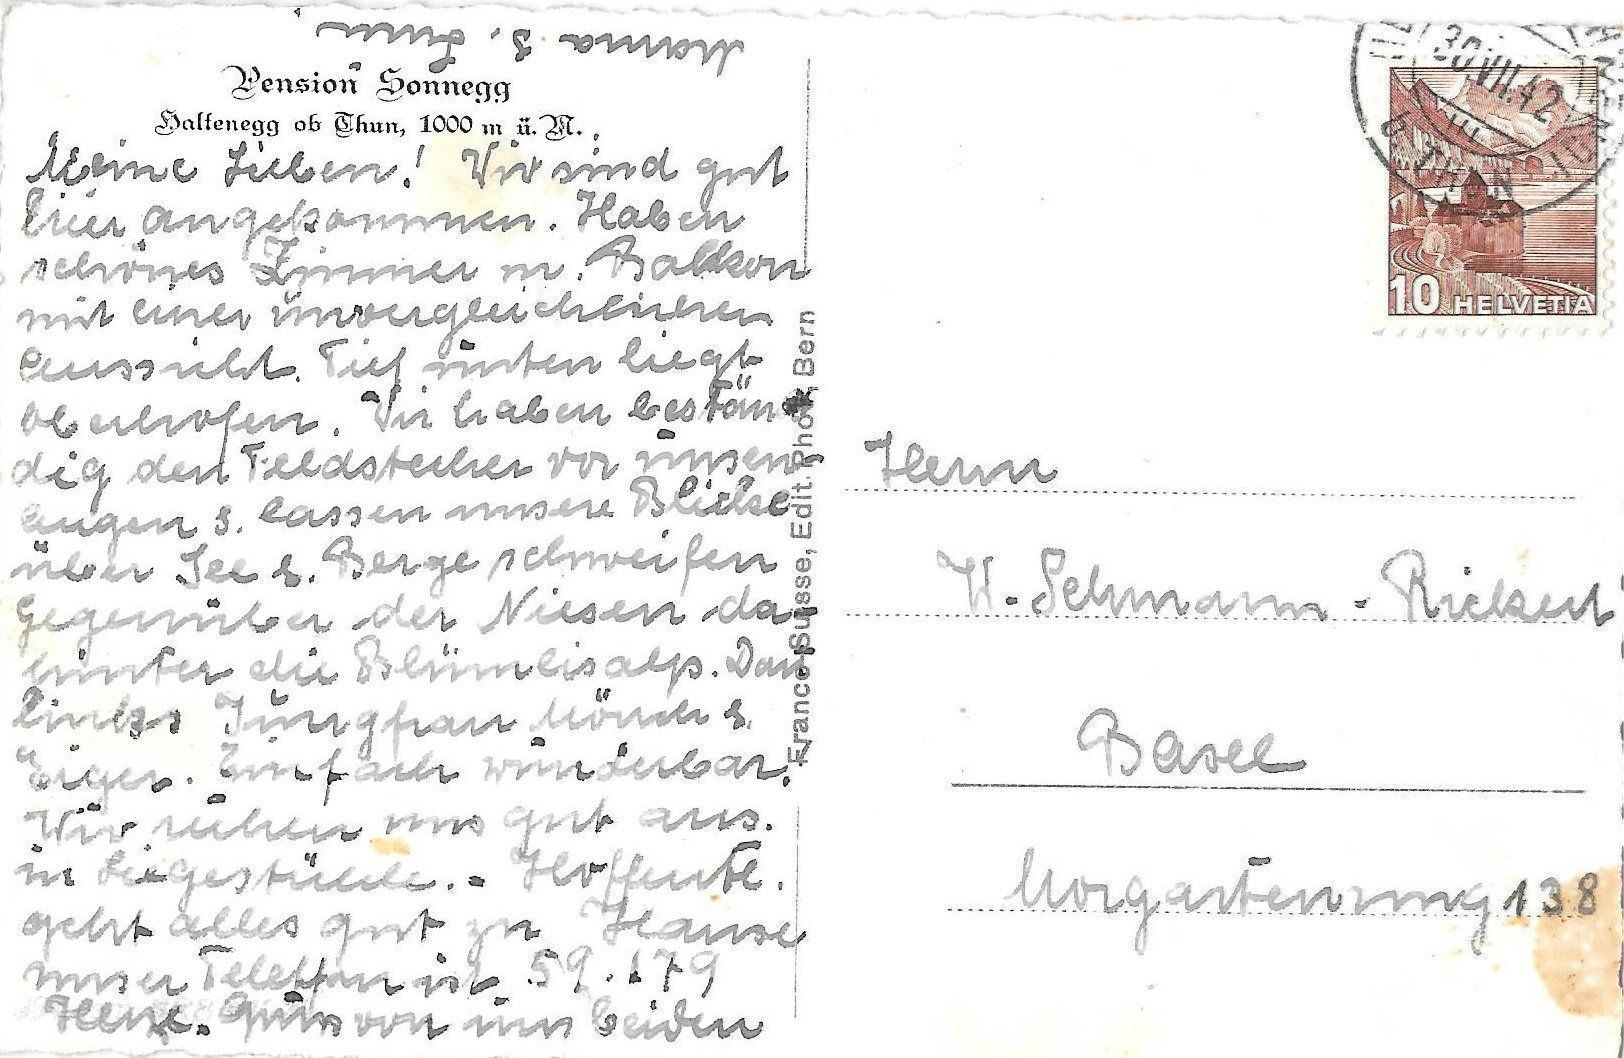 Pension Sonnegg
Haltenegg ob Thun, 1000 m ü. M.
Meine Lieben! Wir sind gut
hier angekommen. Haben
schönes Zimmer m. Balkon
mit einer unvergleichlichen
Aussicht. Tief unten liegt
Oberhofen. Wir haben bestän-
dig den Feldstecher vor unsern
Augen & lassen unsere Blicke
über See & Berge schweifen
Gegenüber der Niesen da
hinter die Blümlisalp. Dan
links Jungfrau Mönch &
Eiger. Einfach wunderbar.
Wir ruhen uns gut aus.
in Liegestühle. - Hoffentl.
geht alles gut zu Hause
unser Telefon ist 59.179
Herzl. Gruss von uns beiden
Mama &
Franco-Suisse, Edit. Phot., Bern
30.VII.42
10 HELVETIA
Herrn
W. Sehmann - Rickert
Basel
Morgartenring 138